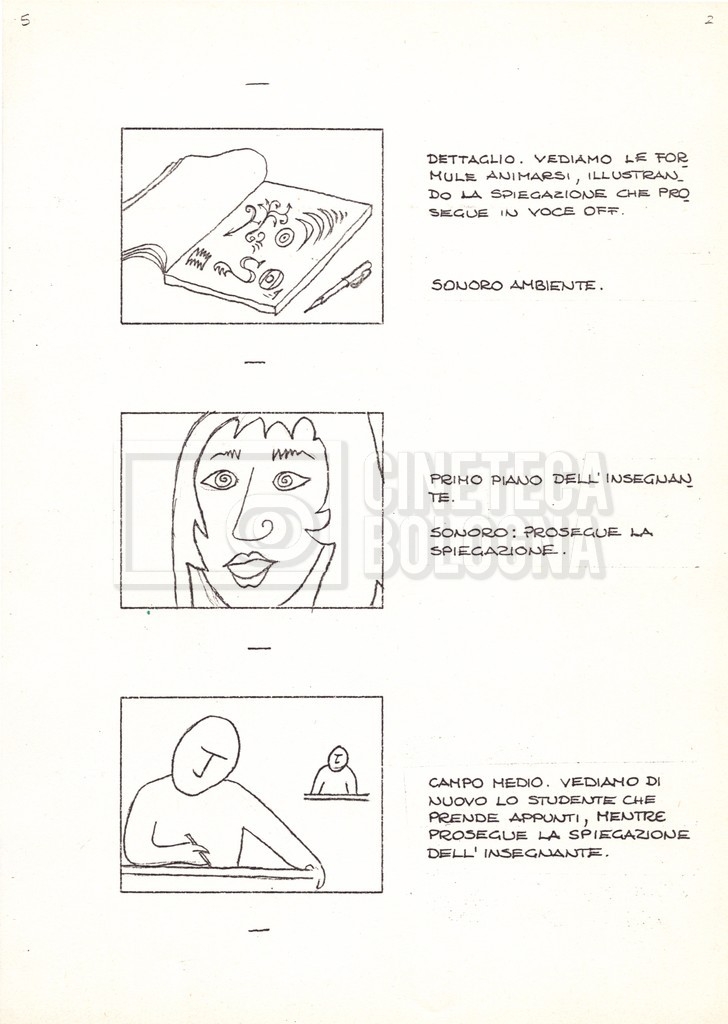 5
2
DETTAGLIO. VEDIAMO LE FOR
MULE ANIMARSI, ILLUSTRAN_
DO LA SPIEGAZIONE CHE PRO
SEGUE IN VOCE OFF.
SONORO AMBIENTE.
PRIMO PIANO DELL'INSEGNAN_
TE.
SONORO: PROSEGUE LA
SPIEGAZIONE.
CINETECA
BOLOGNA
CAMPO MEDIO. VEDIAMO DI
NUOVO LO STUDENTE CHE
PRENDE APPUNTI, MENTRE
PROSEGUE LA SPIEGAZIONE
DELL'INSEGNANTE.